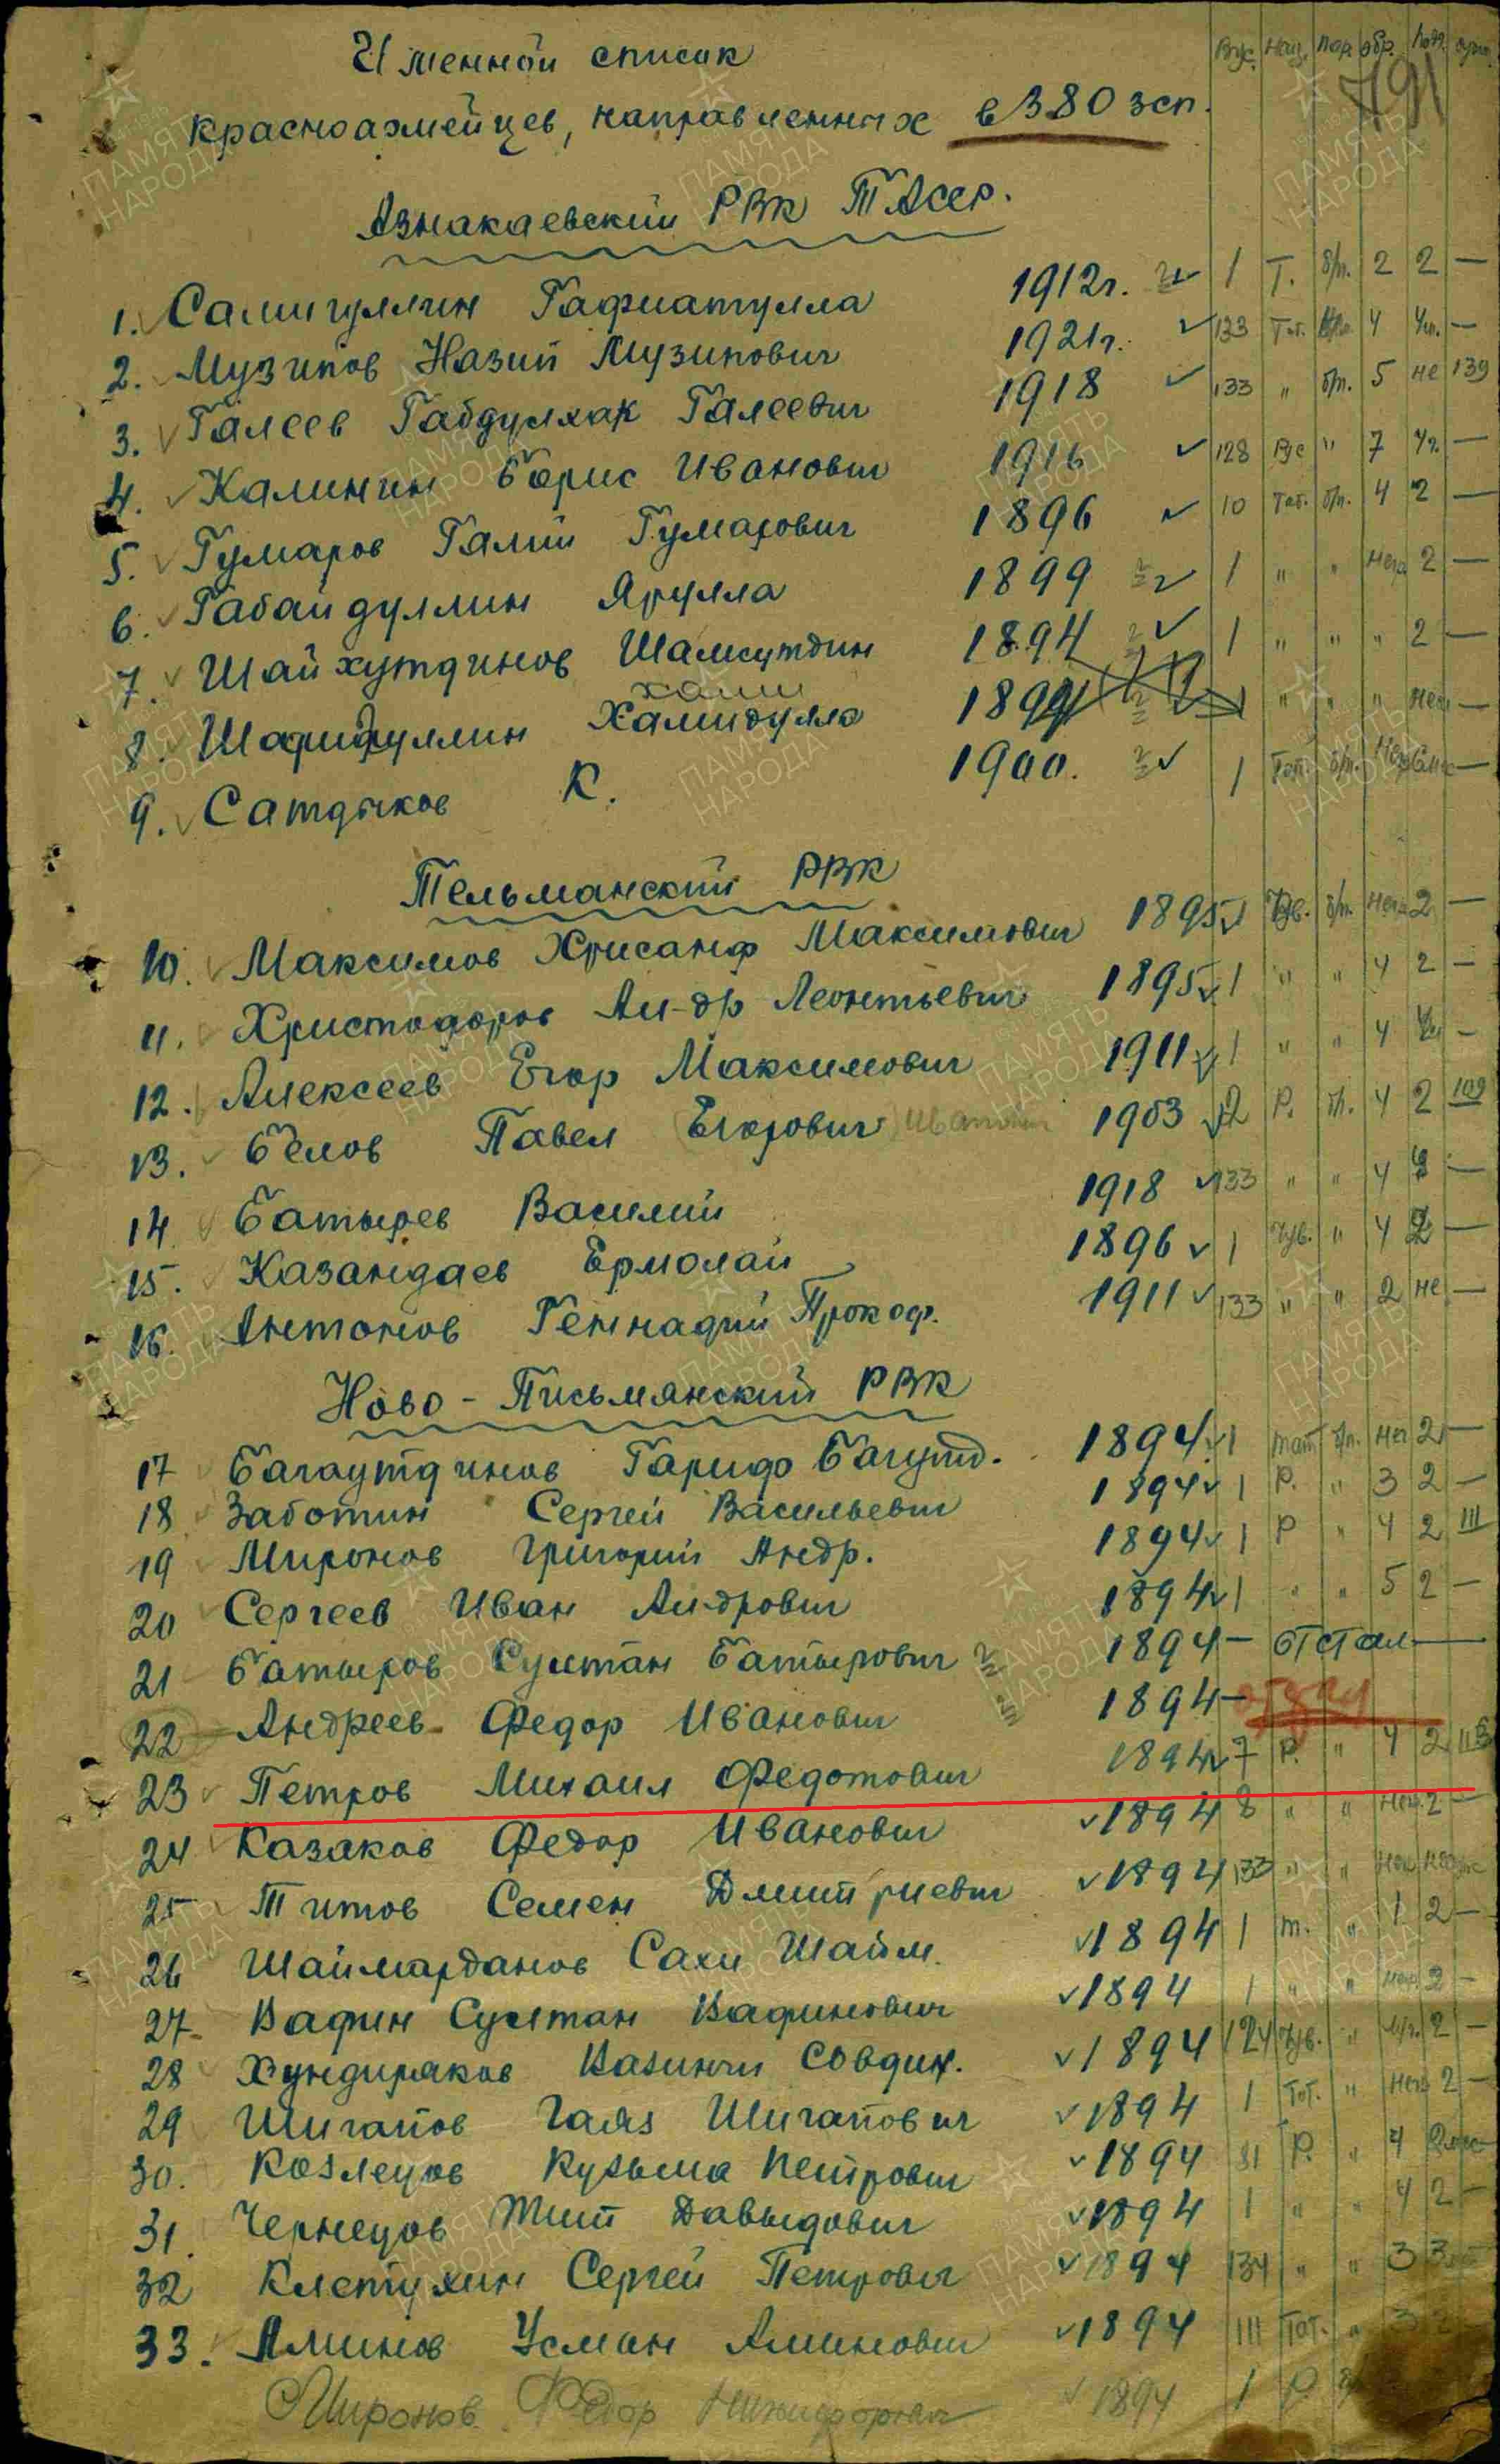 Именной список
Вус. Нац. пар. обр. Годн.
791
красноармейцев, направленных в 380 зсп.
Азнакаевский РВК ТАССР.
1. Самигуллин Гафиатулла 1912г. 1 Т. б/п. 2 2 —
2. Музипов Назип Музипович 1921г. 133 Тат. 4 —
3. Галеев Габдулхак Галеевич 1918 133 " б/п. 5 не 139
4. Калинин Борис Иванович 1916 128 Рус " 7 —
5. Гумаров Галий Гумарович 1896 10 Тат. б/п. 4 2 —
6. Габайдуллин Ярулла 1899 1 " " негр 2 —
7. Шайхутдинов Шамсутдин 1894 1 " " " 2 —
8. Хамидулла 1 " " " —
9. Сатдыков К. 1900. 1 Тат. б/п. —
Тельманский РВК
10. Максимов Хрисанф Максимович 1895 1 Чув. б/п. негр 2 —
11. Христофоров Ал-др Леонтьевич 1895 1 " " 4 2 —
12. Алексеев Егор Максимович 1911 1 " " 4 —
13. Белов Павел (Егорович) 1903 12 Р. б/п. 4 2 109
14 Батырев Василий 1918 133 " " 4 —
15. Казандаев Ермолай 1896 1 Чув. " 4 2 —
16. Антонов Геннадий Прокоф. 1911 133 " " 2 не —
Ново-Письмянский РВК
17 Багаутдинов Гариф Багутд. 1894 1 тат б/п. нег 2 —
18 Заботин Сергей Васильевич 1894 1 Р. " 3 2 —
19 Миронов Григорий Андр. 1894 1 Р " 4 2 III
20 Сергеев Иван Ал-дрович 1894 1 " " 5 2 —
21 Батыров Султан Батырович 1894 — отстал —
22 Андреев Федор Иванович 1894 —
23 Петров Михаил Федотович 1894 7 Р. " 4 2
24 Казаков Федор Иванович 1894 8 " " 2 —
25 Титов Семен Дмитриевич 1894 133 " "
26 Шаймарданов Сахи Шайм. 1894 1 т. " 1 2 —
27 Вафин Султан Вафинович 1894 1 " " негр 2 —
28 Хундиряков 1894 124 Чув. " 2 —
29 Шигапов Гаяз Шигапович 1894 1 Тат. " 2 —
30. Козлецов Кузьма Петрович 1894 31 Р. " 4
31. Чернецов Тит Давыдович 1894 1 " " 4 2 —
32 Клетухин Сергей Петрович 1894 134 " " 3 3
33. Аминов Усман Аминович 1894 111 Тат. " 3 2
Миронов Федор Никифорович 1894 1 Р